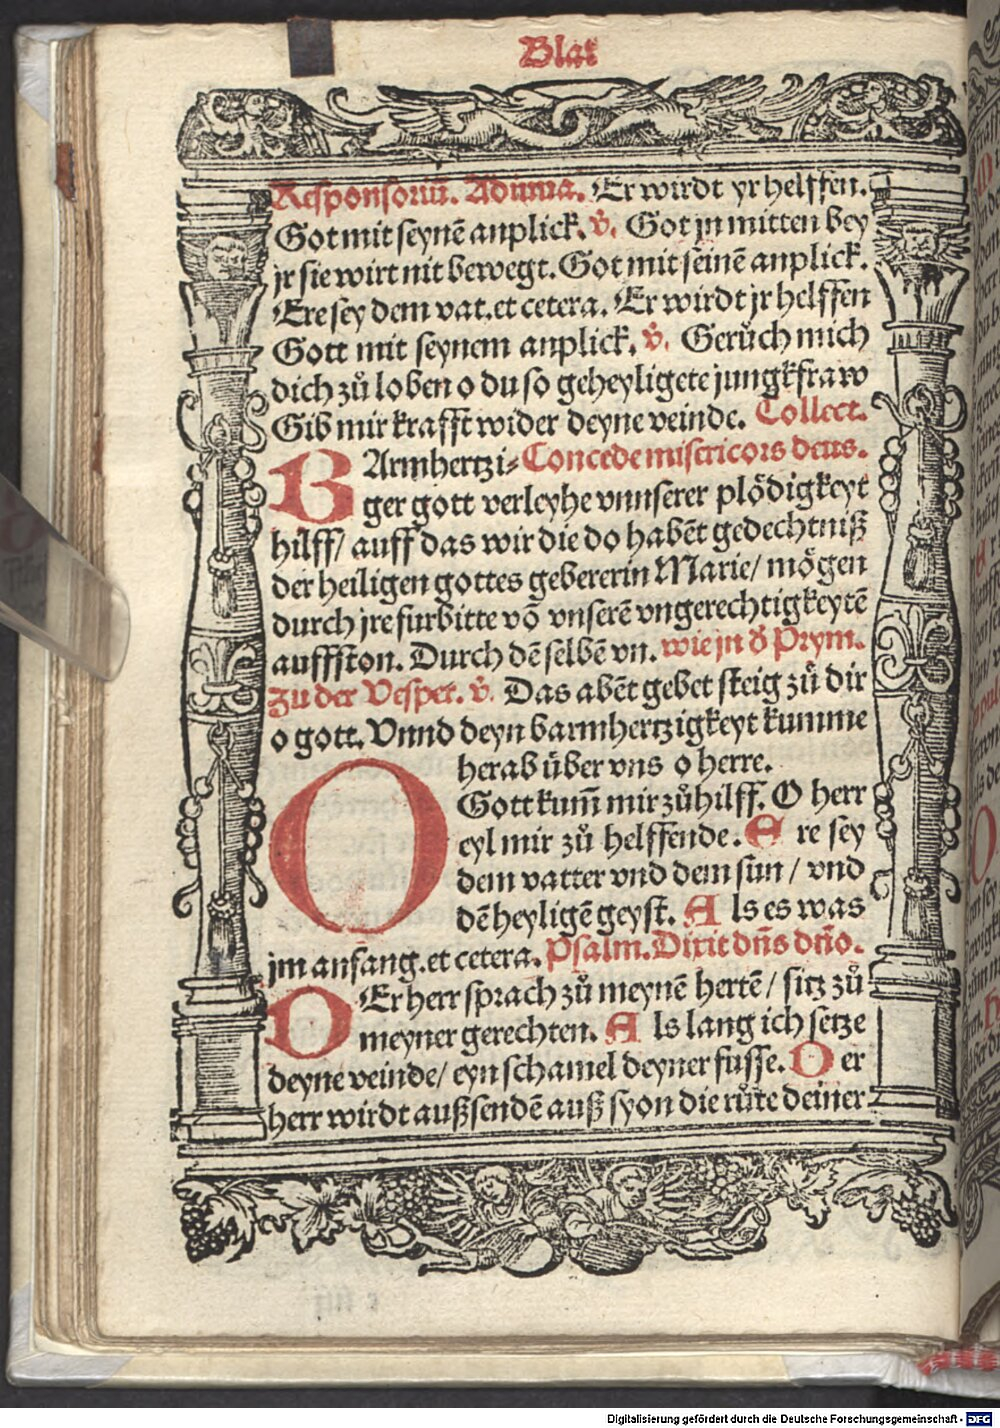 Blat
Responsoriū. Adiuua. Er wirdt yr helffen.
Got mit seynē anplick. v̄. Got jn mitten bey
jr sie wirt nit bewegt. Got mit seinē anplick.
Ere sey dem vat. et cetera. Er wirdt jr helffen
Gott mit seynem anplick. v̄. Gerůch mich
dich zů loben o du so geheyligete jungkfraw
Gib mir krafft wider deyne veinde. Collect.
BArmhertzi⸗ Concede misericors deus.
ger gott verleyhe vnnserer plödigkeyt
hilff/ auff das wir die do habēt gedechtniß
der heiligen gottes gebererin Marie/ mögen
durch jre furbitte vō vnserē vngerechtigkeytē
auffston. Durch dē selbē vn. wie jn đ Prym.
Zu der Vesper. v̄. Das abēt gebet steig zů dir
o gott. Vnnd deyn barmhertzigkeyt kumme
herab über vns o herre.
O Gott kum̄ mir zů hilff. O herr
eyl mir zů helffende. E re sey
dem vatter vnd dem sun / vnd
dē heyligē geyst. A ls es was
jm anfang. et cetera. Psalm. Dixit dn̄s dn̄o.
DEr herr sprach zů meynē hertē / sitz zů
meyner gerechten. A ls lang ich setze
deyne veinde/ eyn schamel deyner füsse. D er
herr wirdt außsendē auß syon die růte deiner
Digitalisierung gefördert durch die Deutsche Forschungsgemeinschaft - DFG